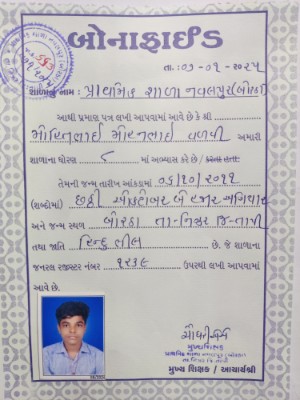 બોનાફાઈડ
તા.: ૦૭-૦૧-૨૦૨૫
શાળાનું નામ : પ્રાથમિક શાળા નવલપુરા(બોરઠા)
આથી પ્રમાણ પત્ર લખી આપવામાં આવે છે કે શ્રી
વળવી અમારી
શાળાના ધોરણ ૮ માં અભ્યાસ કરે છે /
તેમની જન્મ તારીખ આંકડામાં ૦૬/૧૦/૨૦૧૧
(શબ્દોમાં) છઠ્ઠી ઓક્ટોબર બે હજાર અગિયાર
અને જન્મ સ્થળ બોરઠા તા-નિઝર જિ-તાપી
તથા જાતિ હિન્દુ ભીલ છે. જે શાળાના
જનરલ રજીસ્ટર નંબર ૧૨૩૯ ઉપરથી લખી આપવામાં
આવે છે.
મુખ્યશિક્ષક
મુખ્ય શિક્ષક / આચાર્યશ્રી